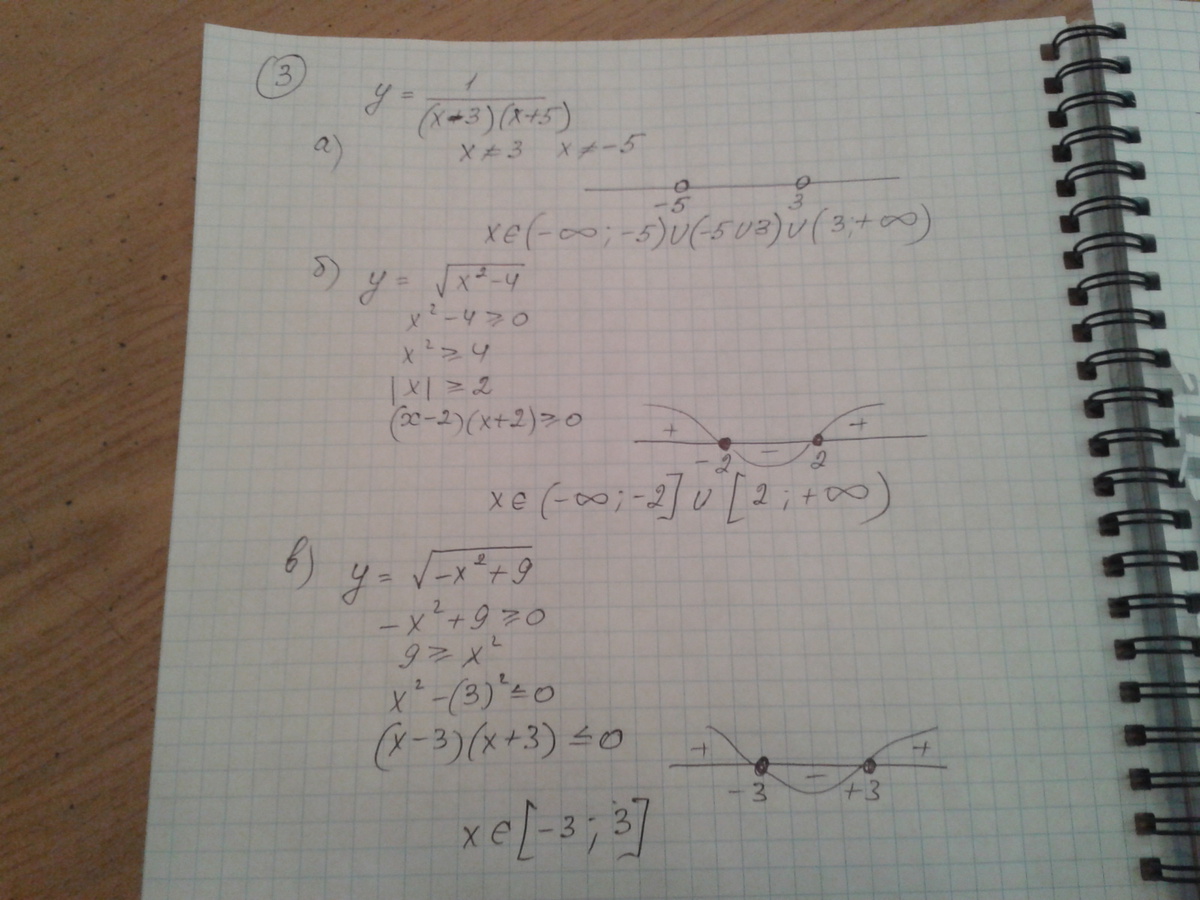 ③
y = 1/((x-3)(x+5))
а) x ≠ 3 x ≠ -5
-5 3
x ∈ (-∞; -5) ∪ (-5 ∪ 3) ∪ (3; +∞)
б) y = √(x² - 4)
x² - 4 ≥ 0
x² ≥ 4
|x| ≥ 2
(x-2)(x+2) ≥ 0
+ - +
-2 2
x ∈ (-∞; -2] ∪ [2; +∞)
в) y = √(-x² + 9)
-x² + 9 ≥ 0
9 ≥ x²
x² - (3)² ≤ 0
(x-3)(x+3) ≤ 0
+ - +
-3 +3
x ∈ [-3; 3]